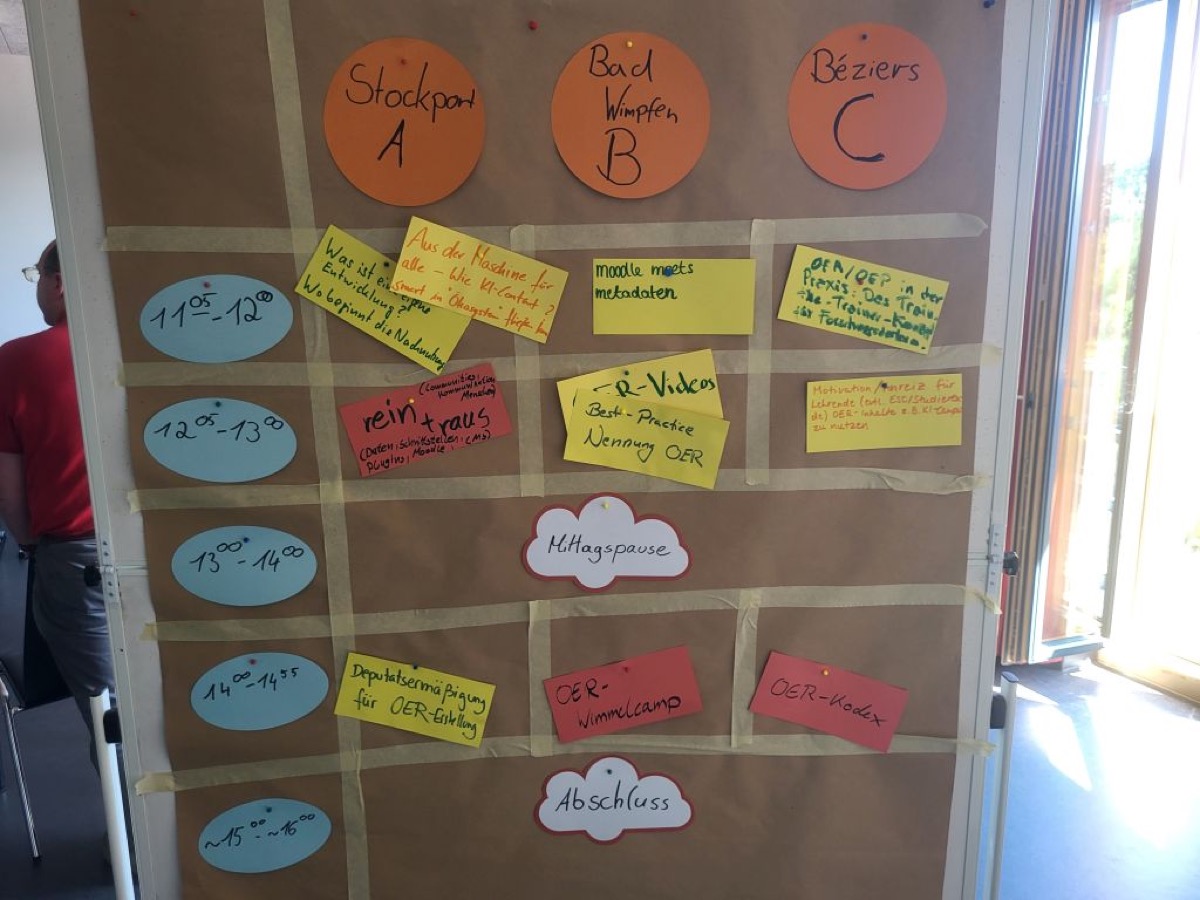 Stockport
A
Bad
Wimpfen
B
Béziers
C
11⁰⁵-12⁰⁰
Was ist
Entwicklung?
Wo beginnt die Nachnutzung
Aus der Maschine für
alle - Wie KI-Content
smart in Ökosystem
moodle meets
metadaten
OER/OEP in der
Praxis: Das Train-
the-Trainer-Konzept
für
12⁰⁵-13⁰⁰
(Communities,
Kommunikation
Menschen)
rein + raus
(Daten, Schnittstellen, CMS)
Plugins, Moodle,
R-Videos
Best-Practice
Nennung OER
Motivation/Anreiz für
Lehrende
OER-Inhalte z.B. KI-Campus
zu nutzen
13⁰⁰-14⁰⁰
Mittagspause
14⁰⁰-14⁵⁵
Deputatsermäßigung
für OER-Erstellung
OER-
Wimmelcamp
OER-Kodex
~15⁰⁰-~16⁰⁰
Abschluss